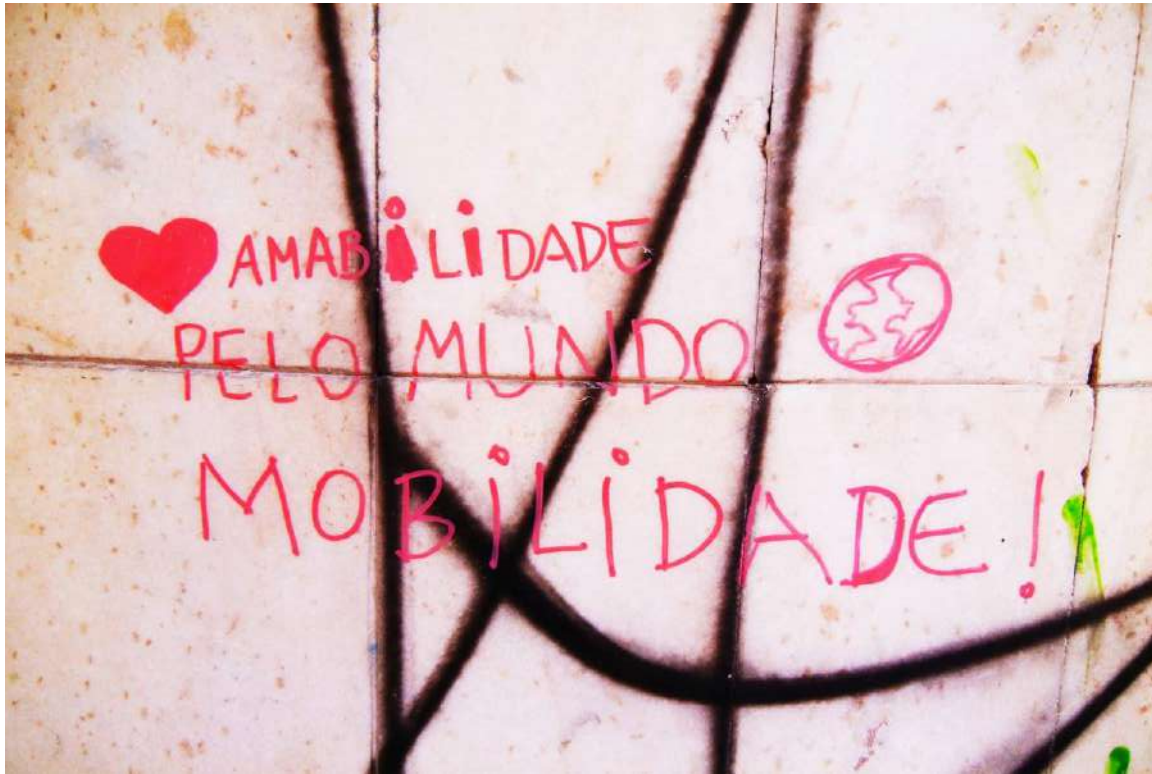 AMABiLiDADE
PELO MUNDO
MOBiLiDADE!